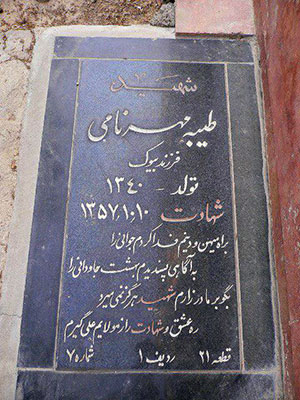 شهید
طیبه مهرنامی
فرزند بیوک
تولد - ۱۳۴۰
شهادت ۱۳۵۷،۱۰،۱۰
براه میهن و دینم فدا کردم جوانی را
به آگاهی پسندیدم بهشت جاودانی را
بگو بر مادر زارم شهید هرگز نمی‌میرد
ره عشق و شهادت را ز مولایم علی گیرم
قطعه ۲۱ ردیف ۱ شماره ۷